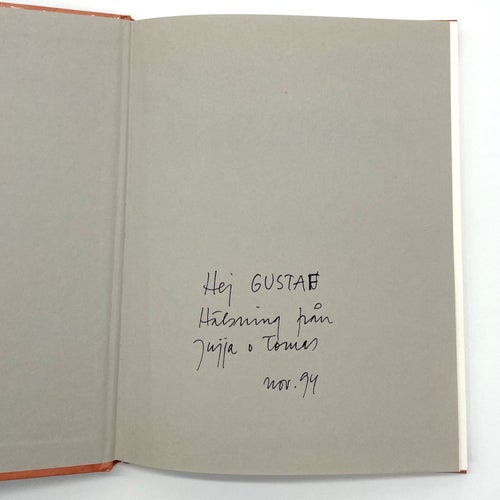 Hej GUSTAF
Hälsning från
Jujja o Tomas
nov. 94